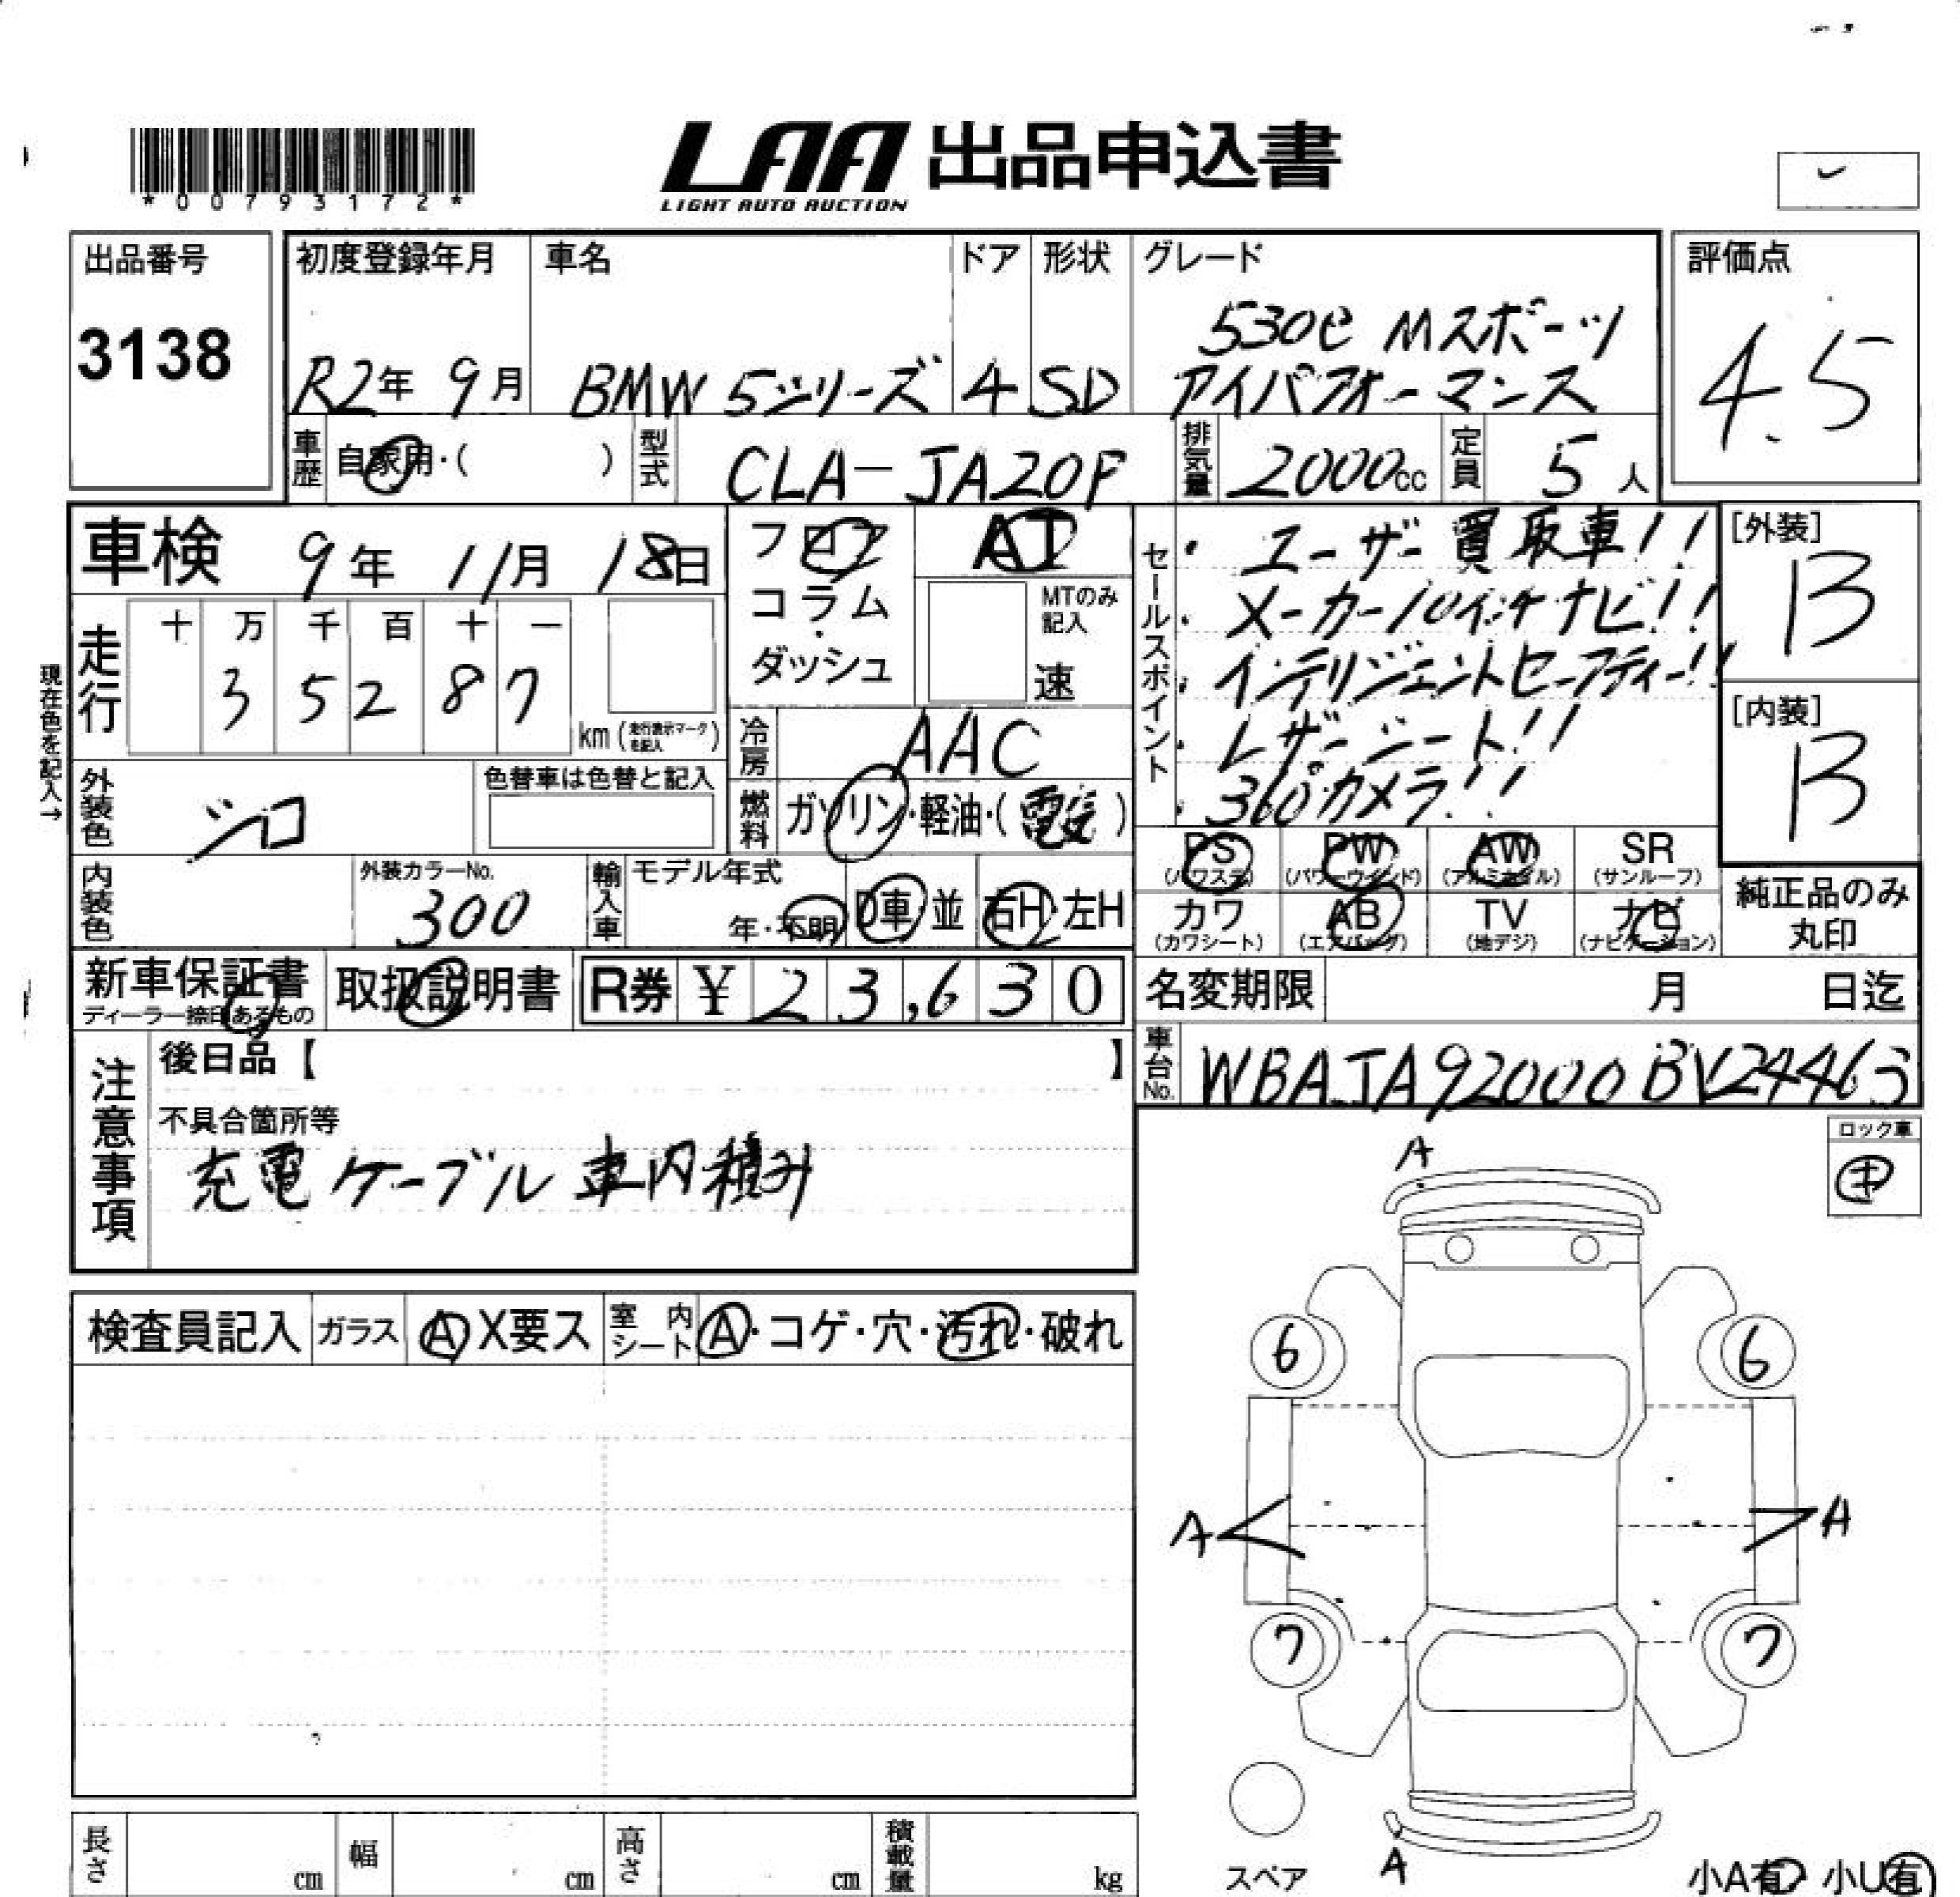 *00793172*
LAA 出品申込書
LIGHT AUTO AUCTION
出品番号
3138
初度登録年月
R2年 9月
車名
BMW 5シリーズ
ドア
4
形状
SD
グレード
530e Mスポーツ
アイパフォーマンス
評価点
4.5
車歴 自家用・( )
型式 CLA-JA20P
排気量 2000cc
定員 5人
車検 9年 11月 18日
フロア
コラム
・
ダッシュ
AT
MTのみ
記入
速
セールスポイント
・ユーザー買取車!!
・メーカー10インチナビ!!
・インテリジェントセーフティー!!
・レザーシート!!
・360°カメラ!!
[外装]
B
[内装]
B
現在色を記入→
走行 十 万 千 百 十 一
3 5 2 8 7
km (走行表示マークを記入)
冷房 AAC
外装色 シロ
色替車は色替と記入
燃料 ガソリン・軽油・(電気)
内装色
外装カラーNo.
300
輸入車 モデル年式
年・不明 D車・並 右H・左H
PS
(パワステ)
PW
(パワーウインド)
AW
(アルミホイル)
SR
(サンルーフ)
カワ
(カワシート)
AB
(エアバッグ)
TV
(地デジ)
ナビ
(ナビゲーション)
純正品のみ
丸印
新車保証書
ディーラー捺印あるもの
取扱説明書
R券 ¥ 23,630
名変期限 月 日迄
車台No. WBAJA92000BV24463
注意事項
後日品【 】
不具合箇所等
充電ケーブル車内積み
ロック車
キ
検査員記入 ガラス A X要ス 室内シート A・コゲ・穴・汚れ・破れ
A
6 6
A A
7 7
スペア
A
小A有 小U有
長さ cm 幅 cm 高さ cm 積載量 kg